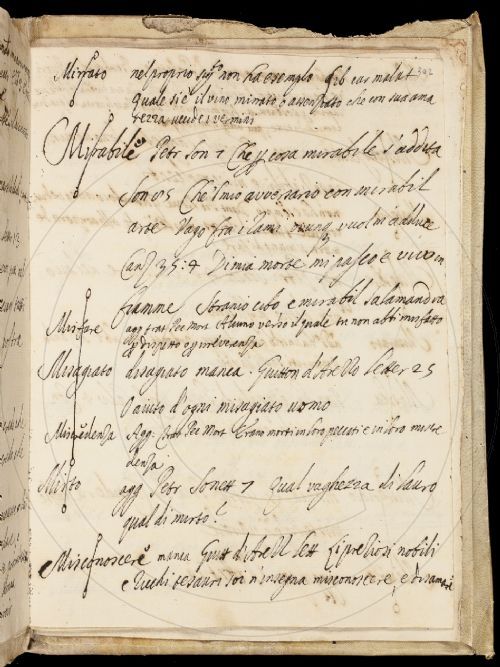 Mirrato nel proprio sig. non ha esempio 302
quale si è il vino mirrato o assentiato che con sua ama
rezza uccide i vermini
Mirabile Petr son 7 Che cosa mirabile s'addita
Son 85 Che'l mio avversario con mirabil
arte Vago fra i rami ovunq vuol m'adduce
Canz 35:4 Di mia morte mi pasco e vivo in
fiamme Stranio cibo e mirabil salamandra
Misfare agg frat Alcuno verso il quale tu non abbi misfatto
dispetto irreverenza
Misagiato disagiato manca. Guitton d'Arezzo Letter 25
O aiuto d'ogni misagiato uomo
Miscredenza Agg. Erano morti in loro peccati e in loro miscre
denza
Mirto agg Petr Sonett 7 Qual vaghezza di lauro
qual di mirto?
Misconoscere manca Guitt d'Arezz lett preziosi nobili
tesauri soi n'insegna misconoscere, e disamare